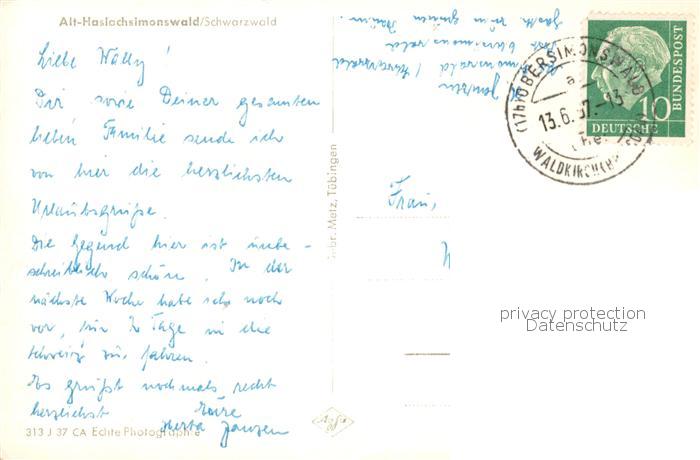 Alt-Haslachsimonswald/Schwarzwald
Liebe Wally!
Dir sowie Deiner gesamten
lieben Familie sende ich
von hier die herzlichsten
Urlaubsgrüße.
Die Gegend hier ist unbe-
schreiblich schön. In der
nächste Woche habe ich noch
vor, für 2 Tage in die
Schweiz zu fahren.
Es grüßt nochmals recht
herzlichst Eure
Herta Janzen
313 J 37 CA Echte Photographie
Gebr. Metz, Tübingen
Frau,
(17b) OBERSIMONSWALD
a
13.6.57.-13
WALDKIRCH
10
DEUTSCHE
BUNDESPOST
privacy protection
Datenschutz